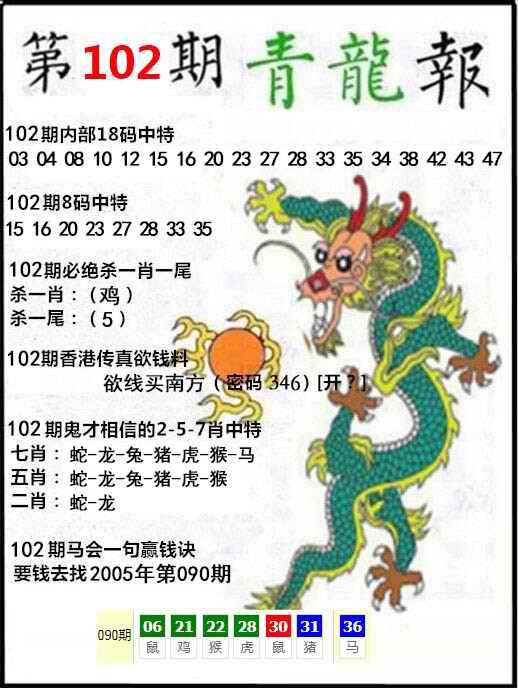 第102期青龍報
102期内部18码中特
03 04 08 10 12 15 16 20 23 27 28 33 35 34 38 42 43 47
102期8码中特
15 16 20 23 27 28 33 35
102期必绝杀一肖一尾
杀一肖：（鸡）
杀一尾：（5）
102期香港传真欲钱料
欲线买南方（密码 346）[开？]
102期鬼才相信的2-5-7肖中特
七肖：蛇-龙-兔-猪-虎-猴-马
五肖：蛇-龙-兔-猪-虎-猴
二肖：蛇-龙
102期马会一句赢钱诀
要钱去找2005年第090期
090期 06 21 22 28 30 31 36
鼠 鸡 猴 虎 鼠 猪 马